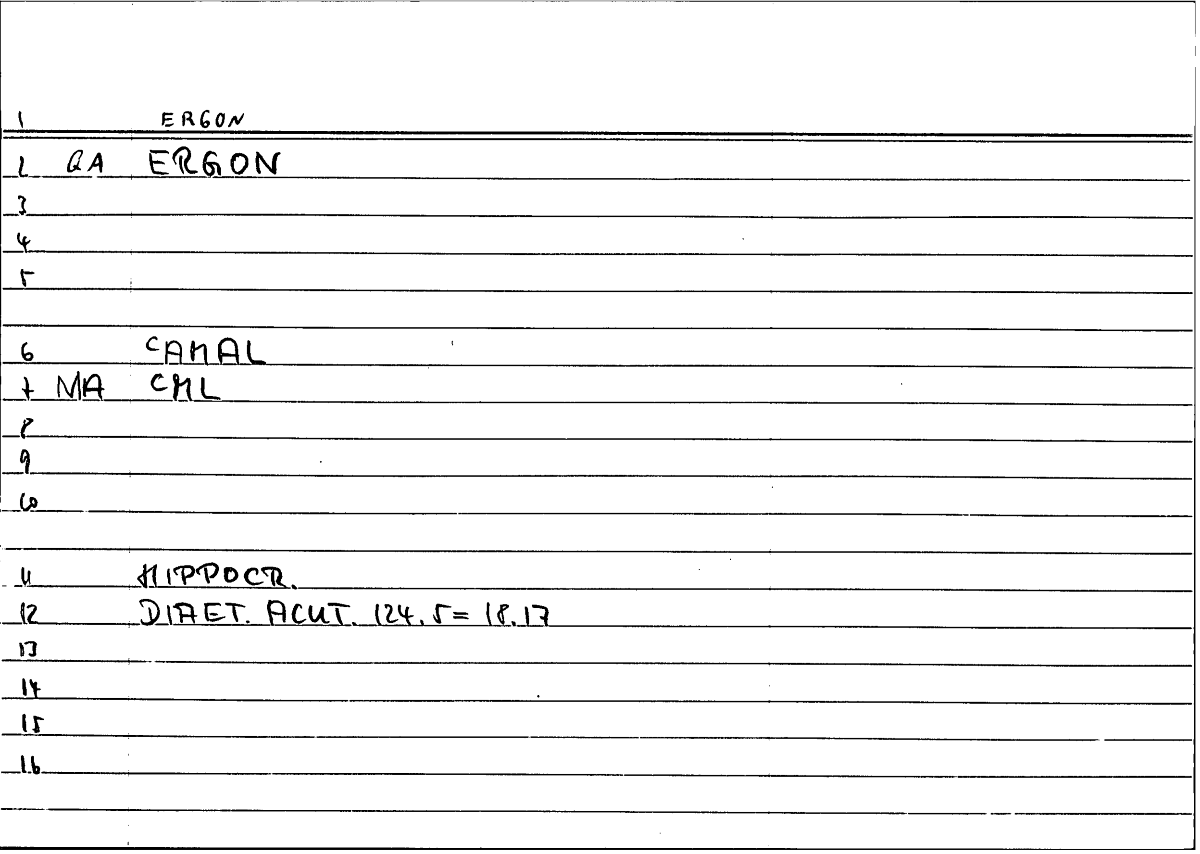 1 ERGON
2 QA ERGON
3
4
5
6 CAMAL
7 MA CML
8
9
10
11 HIPPOCR.
12 DIAET. ACUT. 124.5=18.17
13
14
15
16